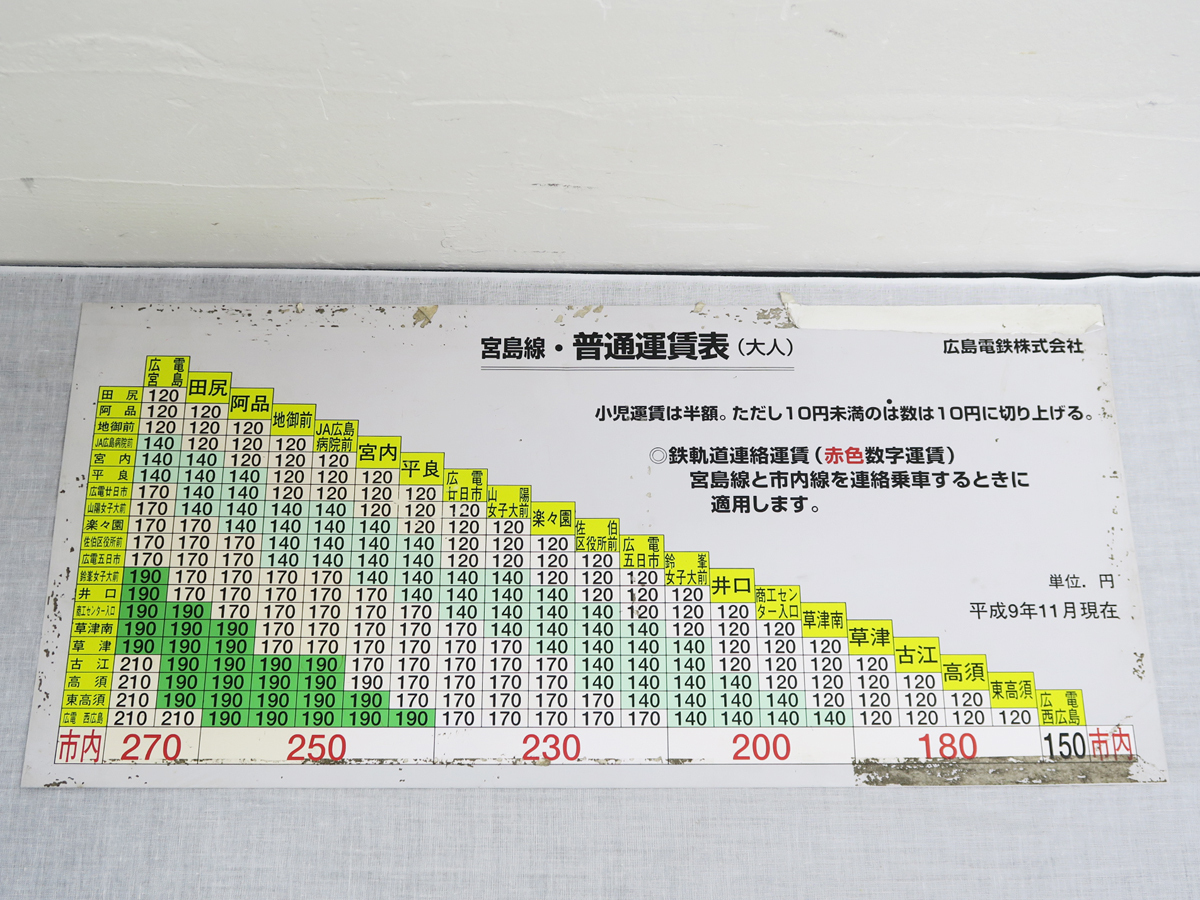 宮島線・普通運賃表（大人）
広島電鉄株式会社
小児運賃は半額。ただし10円未満のは数は10円に切り上げる。
◎鉄軌道連絡運賃（赤色数字運賃）
宮島線と市内線を連絡乗車するときに
適用します。
単位．円
平成9年11月現在
広電
宮島
田尻
阿品
地御前
JA広島
病院前
宮内
平良
広電
廿日市
山陽
女子大前
楽々園
佐伯
区役所前
広電
五日市
鈴峯
女子大前
井口
商工セン
ター入口
草津南
草津
古江
高須
東高須
広電
西広島
田尻 120
阿品 120 120
地御前 120 120 120
JA広島病院前 140 120 120 120
宮内 140 140 120 120 120
平良 140 140 140 120 120 120
広電廿日市 170 140 140 120 120 120 120
山陽女子大前 170 140 140 140 140 120 120 120
楽々園 170 170 140 140 140 140 120 120 120
佐伯区役所前 170 170 170 140 140 140 140 120 120 120
広電五日市 170 170 170 140 140 140 140 120 120 120 120
鈴峯女子大前 190 170 170 170 170 140 140 140 140 120 120 120
井口 190 170 170 170 170 170 140 140 140 140 120 120 120
商工センター入口 190 190 170 170 170 170 170 140 140 140 140 120 120 120
草津南 190 190 190 170 170 170 170 170 140 140 140 140 120 120 120
草津 190 190 190 170 170 170 170 170 170 140 140 140 140 120 120 120
古江 210 190 190 190 190 170 170 170 170 170 140 140 140 120 120 120 120
高須 210 190 190 190 190 190 170 170 170 170 140 140 140 140 120 120 120 120
東高須 210 190 190 190 190 190 170 170 170 170 170 140 140 140 140 120 120 120 120
広電西広島 210 210 190 190 190 190 190 170 170 170 170 170 140 140 140 140 120 120 120 120
市内 270 250 230 200 180 150 市内